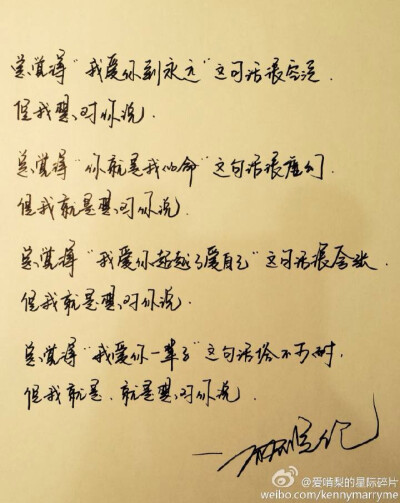 总觉得“我爱你到永远”这句话很空泛.
但我想对你说.
总觉得“你就是我的命”这句话很虚幻
但我就是想对你说.
总觉得“我爱你超越了爱自己”这句话很夸张.
但我就是想对你说.
总觉得“我爱你一辈子”这句话恰不可耐.
但我就是.就是想对你说.
@爱啃梨的星际碎片
weibo.com/kennymarryme